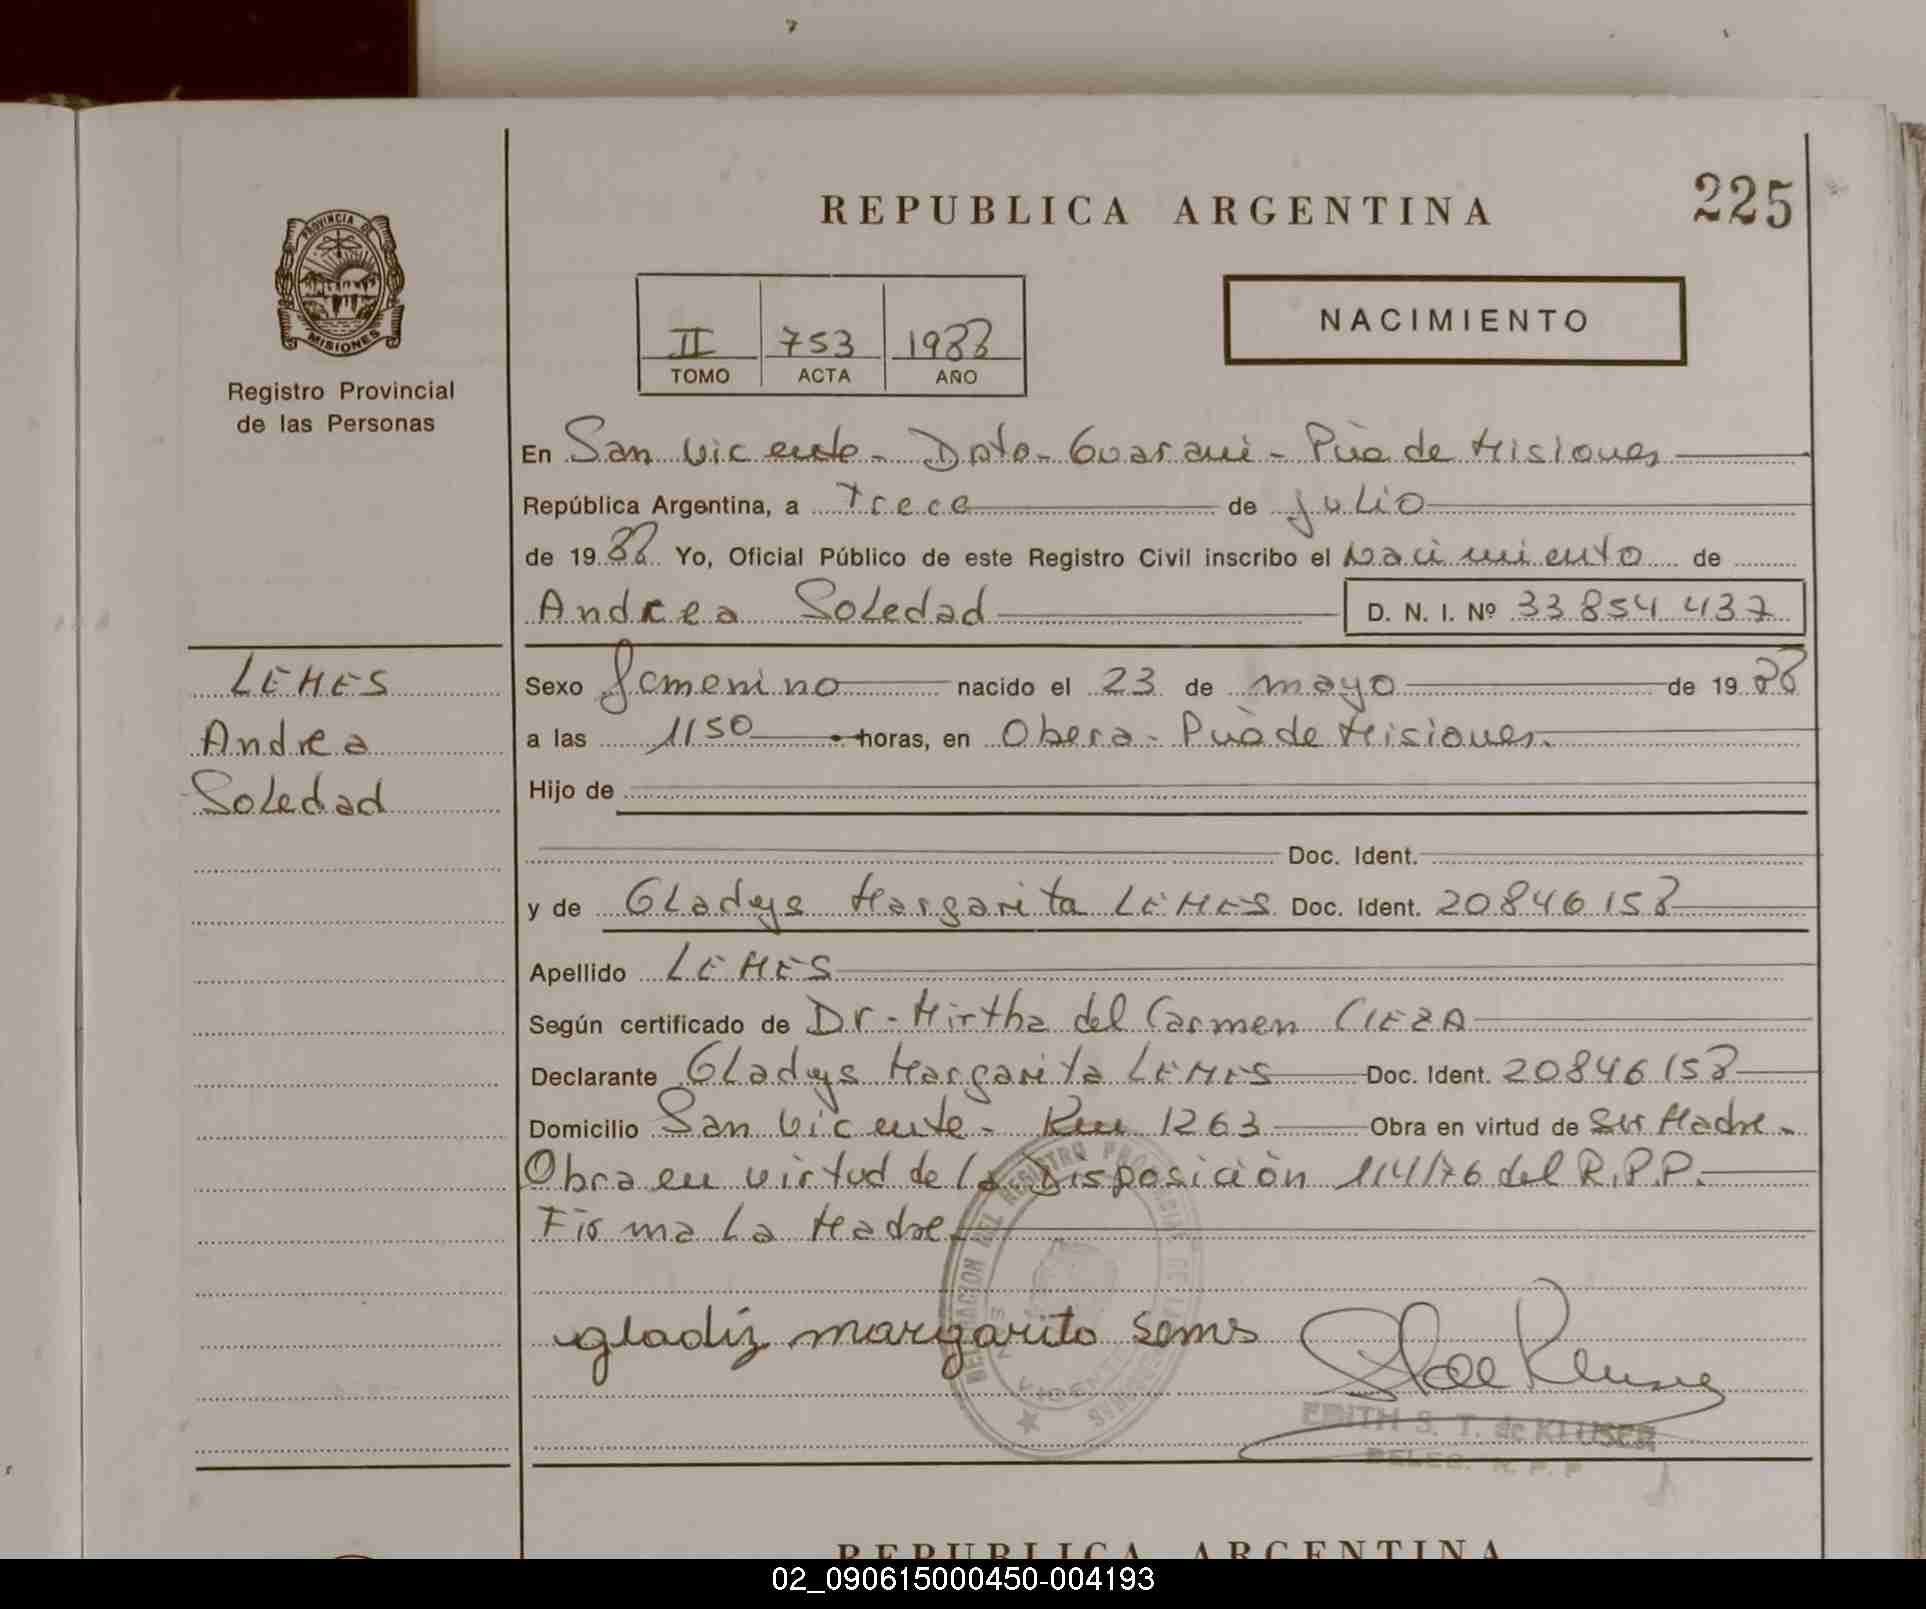 225
REPUBLICA ARGENTINA
PROVINCIA DE
MISIONES
Registro Provincial
de las Personas
NACIMIENTO
II 753 1988
TOMO ACTA AÑO
En San Vicente - Dpto - Guaraní - Pcia de Misiones
República Argentina, a Trece de julio
de 1988 Yo, Oficial Público de este Registro Civil inscribo el Nacimiento de
Andrea Soledad D. N. I. Nº 33.854.437
LEMES
Andrea
Soledad
Sexo femenino nacido el 23 de mayo de 1988
a las 1150 horas, en Obera - Pcia de Misiones.
Hijo de
Doc. Ident.
y de Gladys Margarita LEMES Doc. Ident. 20846158
Apellido LEMES
Según certificado de Dr - Mirtha del Carmen CIEZA
Declarante Gladys Margarita LEMES Doc. Ident. 20846158
Domicilio San Vicente - Km 1263 Obra en virtud de ser Madre -
Obra en virtud de la Disposición 114/76 del R.P.P.
Firma La Madre
gladiz margarita
EDITH S. T. de KLUSER
DELEG. R. P. P
REPUBLICA ARGENTINA
02_090615000450-004193